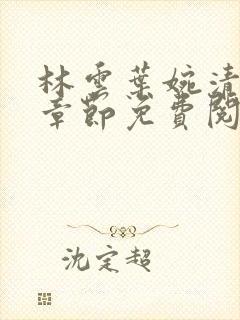 林雲葉婉清
章節免費閱
沈定超